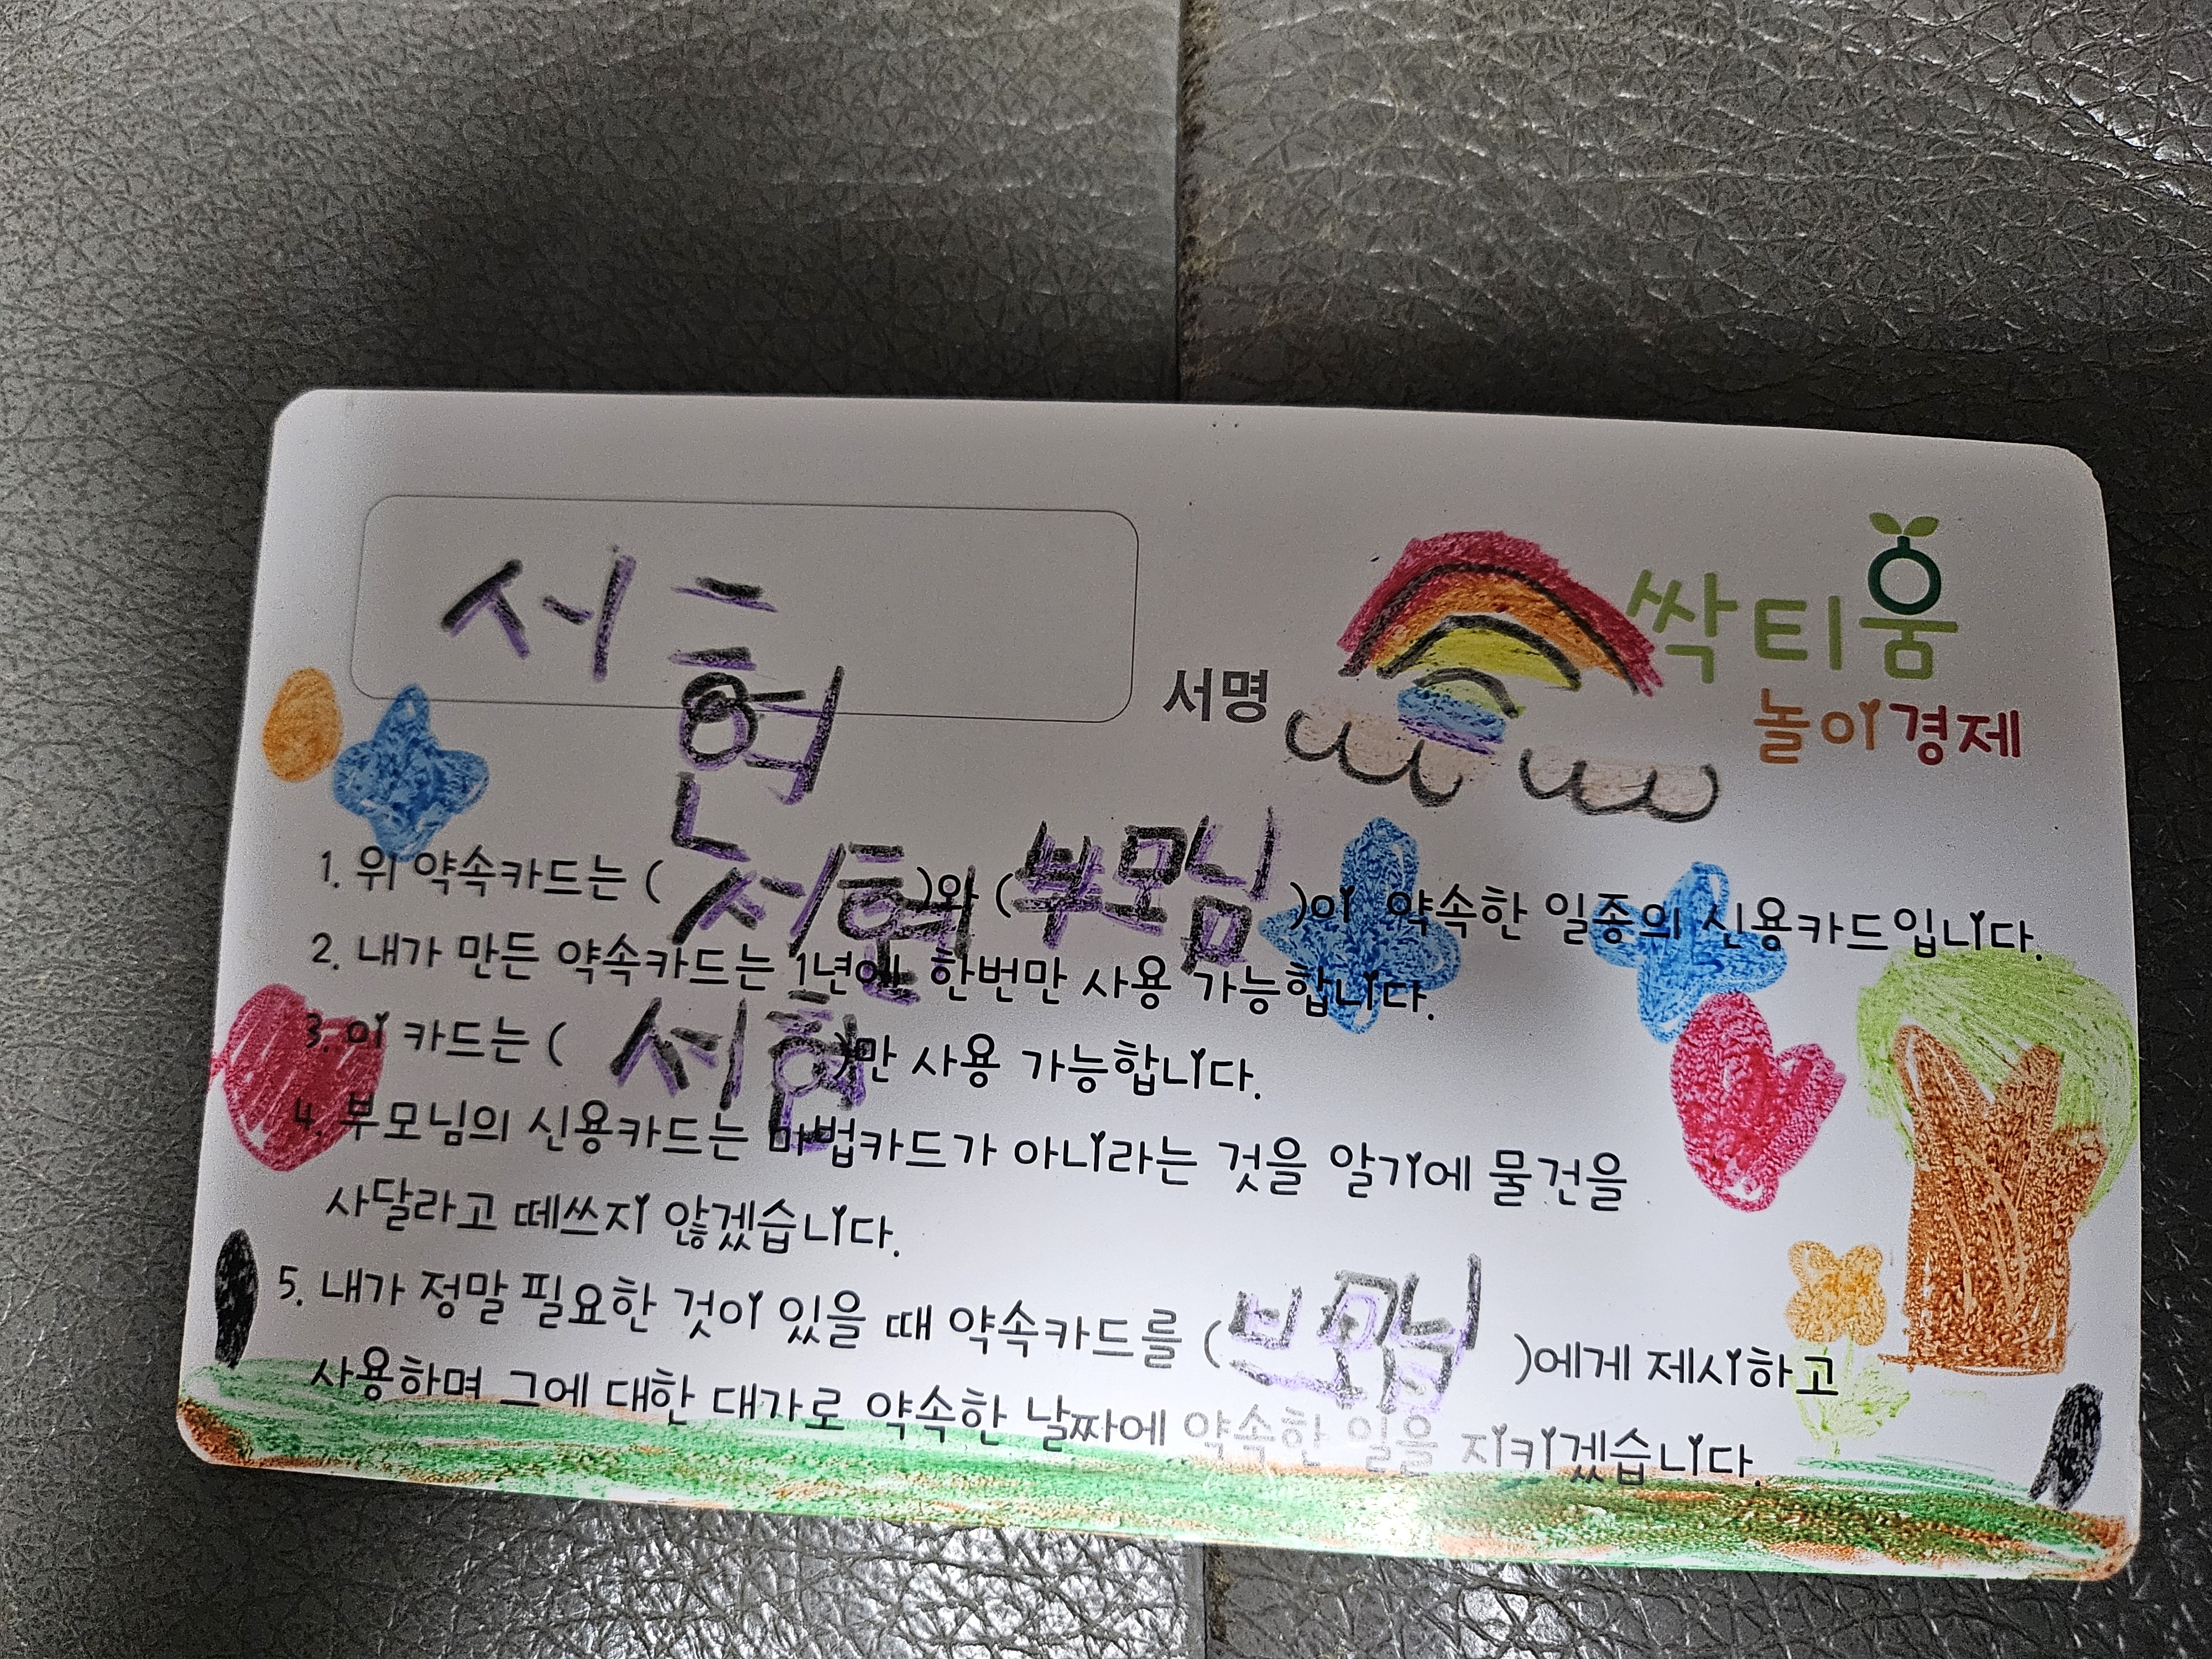 서현
서명
싹티움
놀이경제
1. 위 약속카드는 ( 서현 )와 ( 부모님 )이 약속한 일종의 신용카드입니다.
2. 내가 만든 약속카드는 1년에 한번만 사용 가능합니다.
3. 이 카드는 ( 서현 )만 사용 가능합니다.
4. 부모님의 신용카드는 마법카드가 아니라는 것을 알기에 물건을
사달라고 떼쓰지 않겠습니다.
5. 내가 정말 필요한 것이 있을 때 약속카드를 ( 부모님 )에게 제시하고
사용하며 그에 대한 대가로 약속한 날짜에 약속한 일을 지키겠습니다.